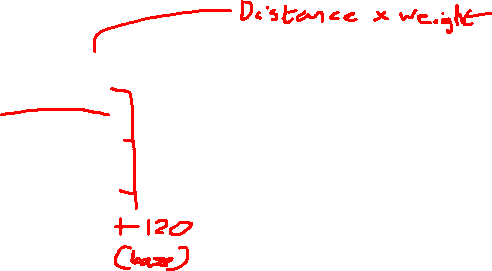 Distance x weight
+ 120
(base)